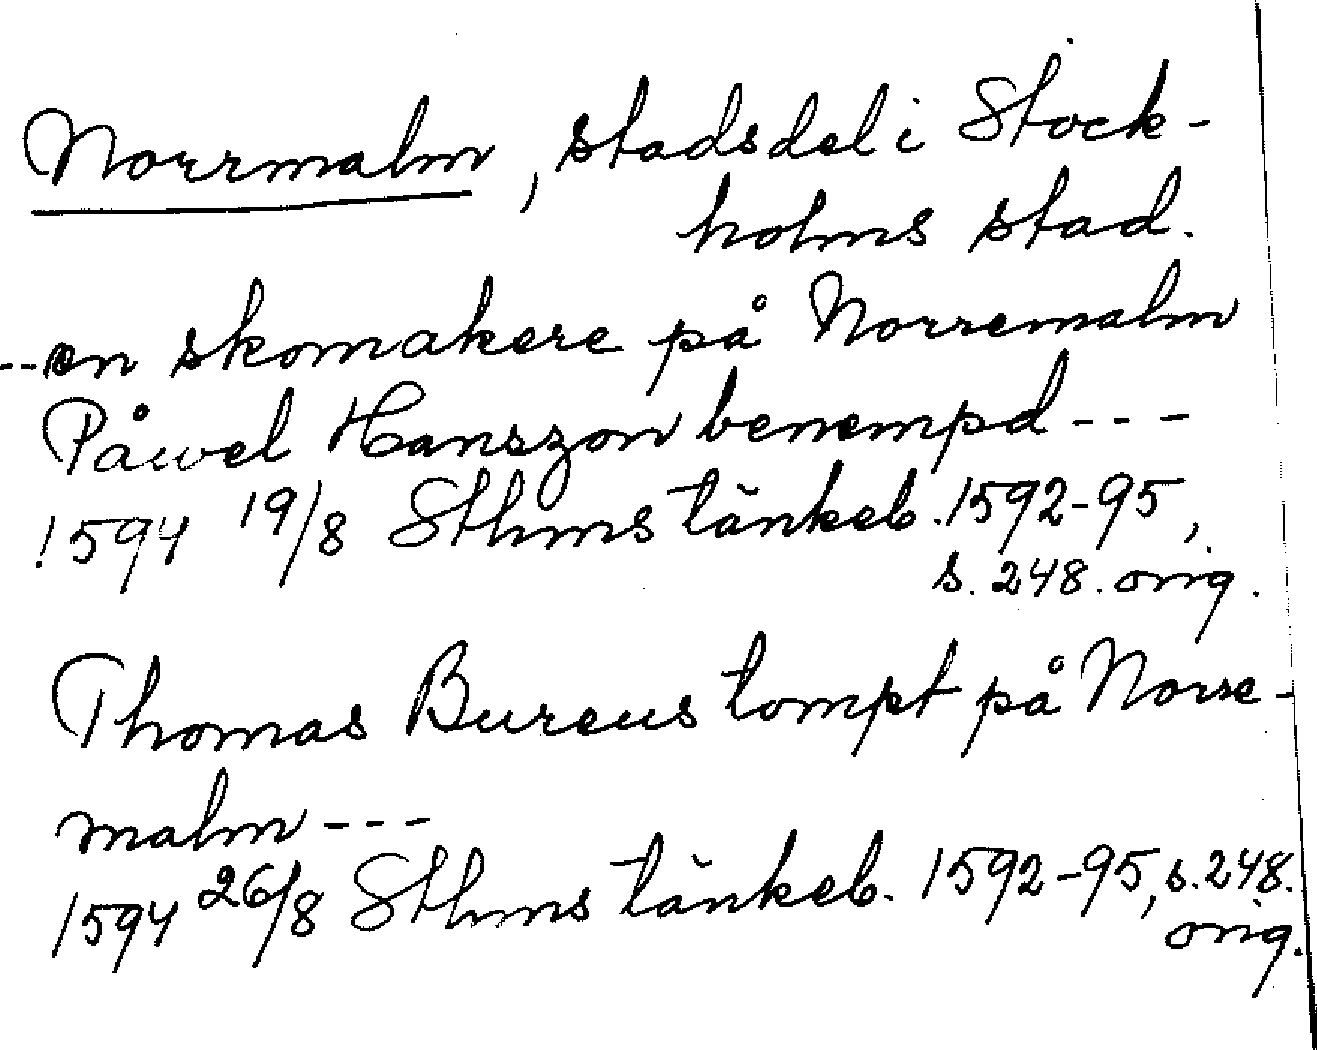 Norrmalm, stadsdel i Stock-
holms stad.
--en skomakere på Norremalm
Påwel Hanszon benempd---
1594 19/8 Sthms tänkeb. 1592-95,
s. 248. orig.
Thomas Bureus tompt på Norre-
malm---
1594 26/8 Sthms tänkeb. 1592-95, s. 248.
orig.